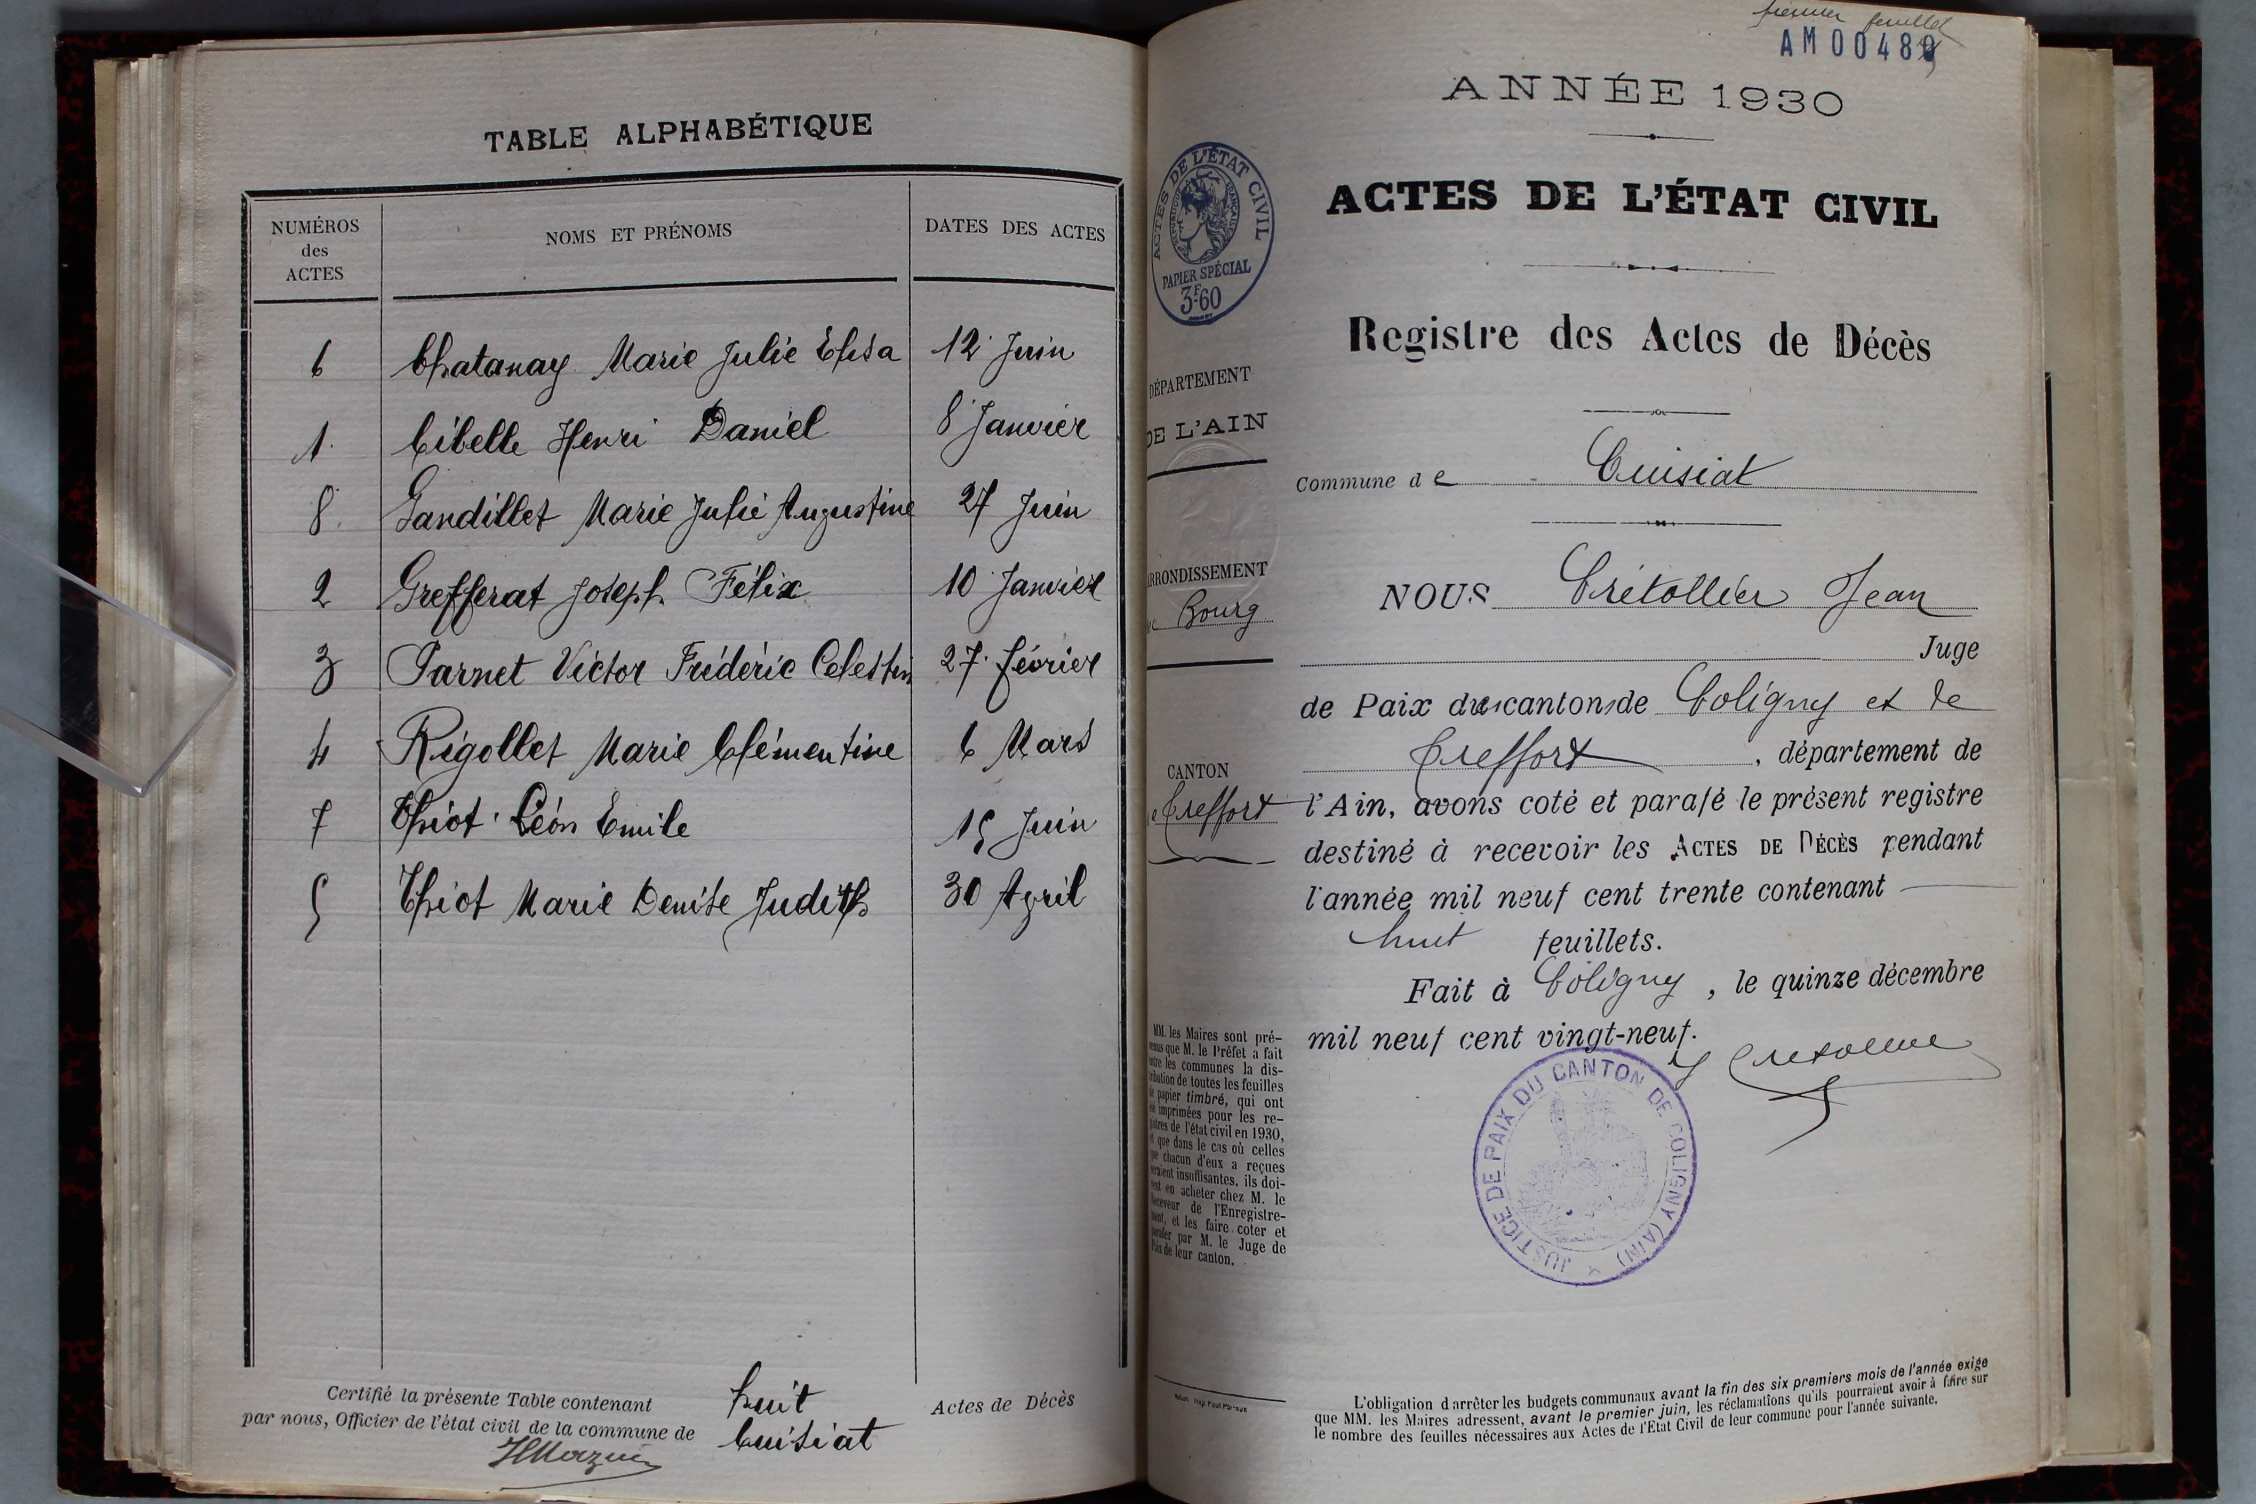 TABLE ALPHABÉTIQUE
NUMÉROS des ACTES
NOMS ET PRÉNOMS
DATES DES ACTES
6 Chatanay Marie Julie Elisa 12 Juin
1 Cibelle Henri Daniel 8 Janvier
8 Gandillet Marie Julie Augustine 27 Juin
2 Grefferat Joseph Félix 10 Janvier
3 Parnet Victor Frédéric Celestin 27 Février
4 Rigollet Marie Clémentine 6 Mars
7 Thiot Léon Emile 15 Juin
5 Thiot Marie Denise Judith 30 Avril
Certifié la présente Table contenant huit Actes de Décès
par nous, Officier de l'état civil de la commune de Cuisiat
premier feuillet
AM00489
ANNÉE 1930
ACTES DE L'ÉTAT CIVIL
Registre des Actes de Décès
ACTES DE L'ÉTAT CIVIL
RÉPUBLIQUE FRANÇAISE
PAPIER SPÉCIAL
3F60
DÉPARTEMENT
DE L'AIN
ARRONDISSEMENT
Bourg
CANTON
Treffort
Commune de Cuisiat
NOUS Crétollier Jean
Juge
de Paix des cantons de Coligny et de
Treffort, département de
l'Ain, avons coté et parafé le présent registre
destiné à recevoir les ACTES DE DÉCÈS pendant
l'année mil neuf cent trente contenant
huit feuillets.
Fait à Coligny, le quinze décembre
mil neuf cent vingt-neuf.
JUSTICE DE PAIX DU CANTON DE COLIGNY (AIN)
MM. les Maires sont pré-
venus que M. le Préfet a fait
entre les communes la dis-
tribution de toutes les feuilles
de papier timbré, qui ont
été imprimées pour les re-
gistres de l'état civil en 1930,
et que dans le cas où celles
que chacun d'eux a reçues
seraient insuffisantes, ils doi-
vent en acheter chez M. le
Receveur de l'Enregistre-
ment, et les faire coter et
parafer par M. le Juge de
Paix de leur canton.
L'obligation d'arrêter les budgets communaux avant la fin des six premiers mois de l'année exige
que MM. les Maires adressent, avant le premier juin, les réclamations qu'ils pourraient avoir à faire sur
le nombre des feuilles nécessaires aux Actes de l'Etat Civil de leur commune pour l'année suivante.